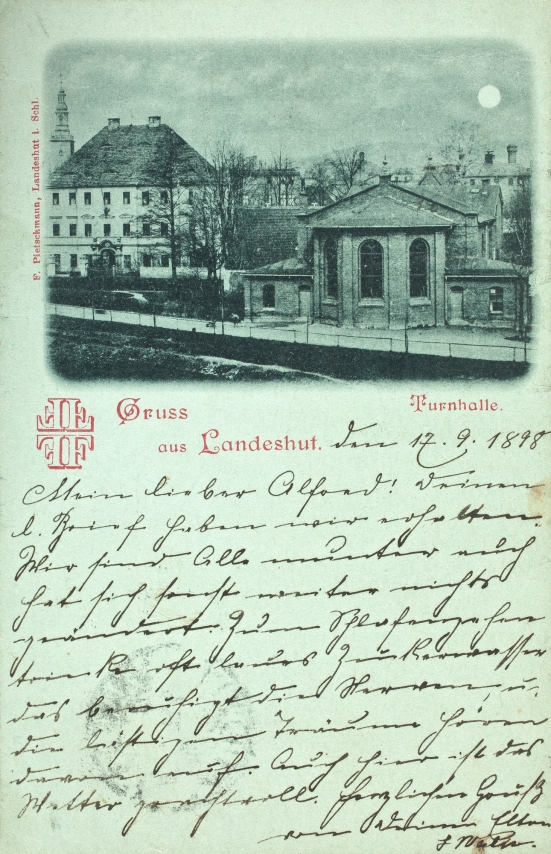 F. Pietschmann, Landeshut i. Schl.
Turnhalle.
Gruss
aus Landeshut. den 17. 9. 1898
Mein lieber Alfred! Deinen
l. Brief haben wir erhalten.
Wir sind Alle munter auch
hat sich sonst weiter nichts
geändert. Zum Schlafengehen
trinke oft laues Zuckerwasser
das beruhigt die Nerven, u.
die lästigen Träume hören
davon auf. Auch hier ist das
Wetter prachtvoll. Herzlichen Gruß
von Deinen Eltern